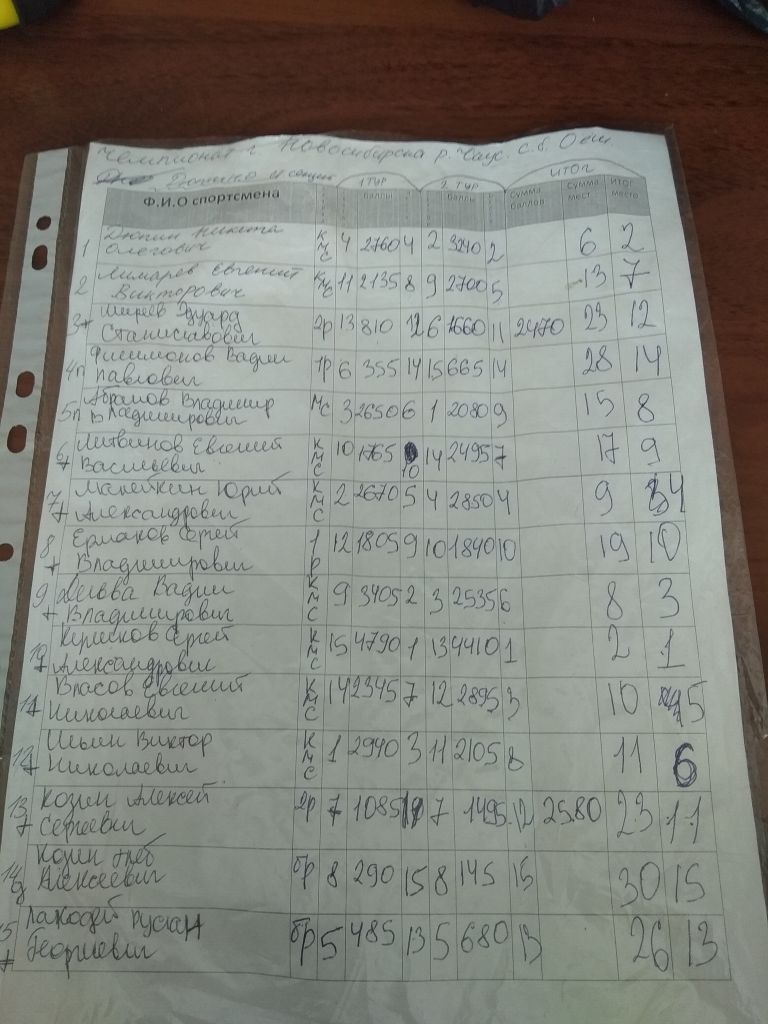 Чемпионат г. Новосибирска р.
секция
1 ТУР 2. ТУР ИТОГ
Ф.И.О спортсмена баллы баллы Сумма баллов Сумма мест Итог место
1 Дюпин Никита Олегович КМС 4 2760 4 2 3240 2 6 2
2 Лимарев Евгений Викторович КМС 11 2135 8 9 2700 5 13 7
3 Эдуард Станиславович 2р 13 810 12 6 1660 11 2470 23 12
4 Филимонов Вадим Павлович 1р 6 355 14 15 665 14 28 14
5 Абрамов Владимир Владимирович МС 3 2650 6 1 2080 9 15 8
6 Литвинов Евгений Васильевич КМС 10 1765 10 14 2495 7 17 9
7 Юрий Александрович КМС 2 2670 5 4 2850 4 9 4
8 Ермаков Сергей Владимирович 1р 12 1805 9 10 1840 10 19 10
9 Вадим Владимирович КМС 9 3405 2 3 2535 6 8 3
10 Сергей Александрович КМС 15 4790 1 13 4410 1 2 1
11 Власов Евгений Николаевич КМС 14 2345 7 12 2895 3 10 5
12 Ильин Виктор Николаевич КМС 1 2940 3 11 2105 8 11 6
13 Козин Алексей Сергеевич 2р 7 1085 11 7 1495 12 2580 23 11
14 Козин Глеб Алексеевич бр 8 290 15 8 145 15 30 15
15 Руслан Георгиевич бр 5 485 13 5 680 13 26 13